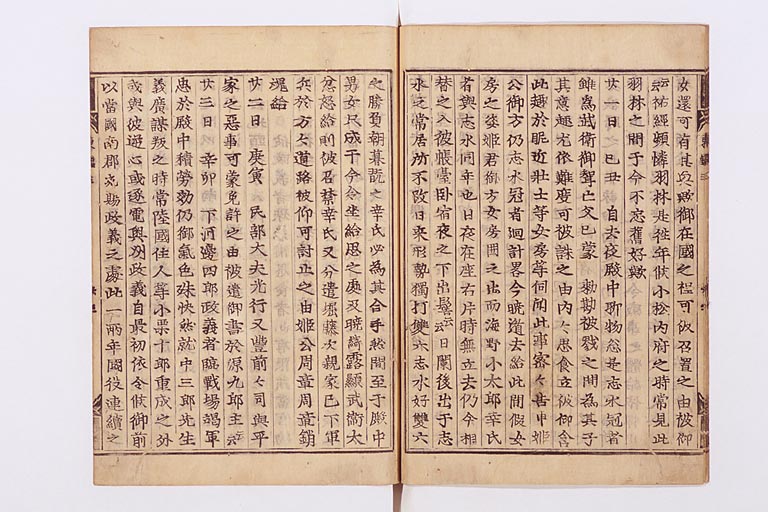 女還可有其煩歟御在國之程可被召置之由被仰
云祐經頗憐羽林是往年候小松内府之時常見此
羽林之間于今不忘舊好歟
廿一日己丑 自去夜殿中聊物忩是志水冠者
雖爲武衛御聟亡父已蒙 勅勘被戮之間爲其子
其意趣尤依難度可被誅之由内〻思食立被仰含
此趣於昵近壯士等女房等伺聞此事密〻告申姬
公御方仍志水冠者廻計畧今曉遁去給此間假女
房之姿姬君御方女房圍之出而海野小太郎幸氏
者與志水同年也日夜在座右片時無立去仍今相
替之入彼帳臺卧宿衣之下出髻云〻日闌後出于志
水之常居所不改日來形勢獨打雙六志水好雙六
之勝負朝暮翫之幸氏必為其合手然間至于殿中
男女只成于今令坐給思之處及晩縡露顯武衛太
忿怒給則被召禁幸氏又分遣堀藤次親家已下軍
兵於方〻道路被仰可討止之由姬公周章令銷
魂給
廿二日庚寅 民部大夫光行又豐前〻司與平
家之惡事可蒙免許之由被遣御書於源九郎主云〻
廿三日辛卯 下河邊四郎政義者臨戰場竭軍
忠於殿中積勞効仍御氣色殊快然就中三郎先生
義廣謀叛之時常陸國住人等小栗十郎重成之外
或與彼逆心或逐電與 政義自最初依令候御前
以當國南郡宛賜政義之處此一兩年國役連續之